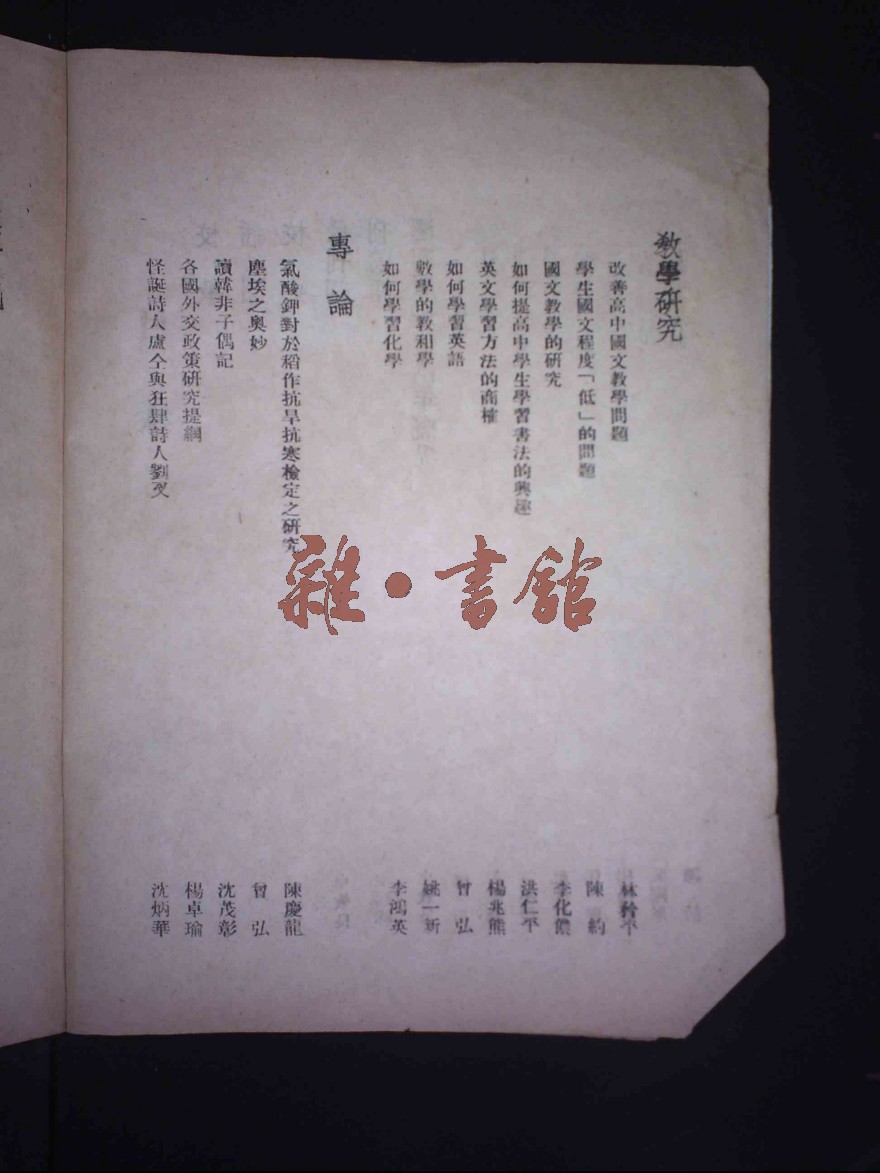 教學研究
改善高中國文教學問題 林矜平
學生國文程度「低」的問題 陳約
國文教學的研究 李化儂
如何提高中學生學習書法的興趣 洪仁平
英文學習方法的商榷 楊兆熊
如何學習英語 曾弘
數學的教和學 姚一新
如何學習化學 李鴻英
專論
氯酸鉀對於稻作抗旱抗寒檢定之研究 陳慶龍
塵埃之奧妙 曾弘
讀韓非子偶記 沈茂彰
各國外交政策研究提綱 楊卓瑜
怪誕詩人盧仝與狂肆詩人劉叉 沈炳華
雜·書館